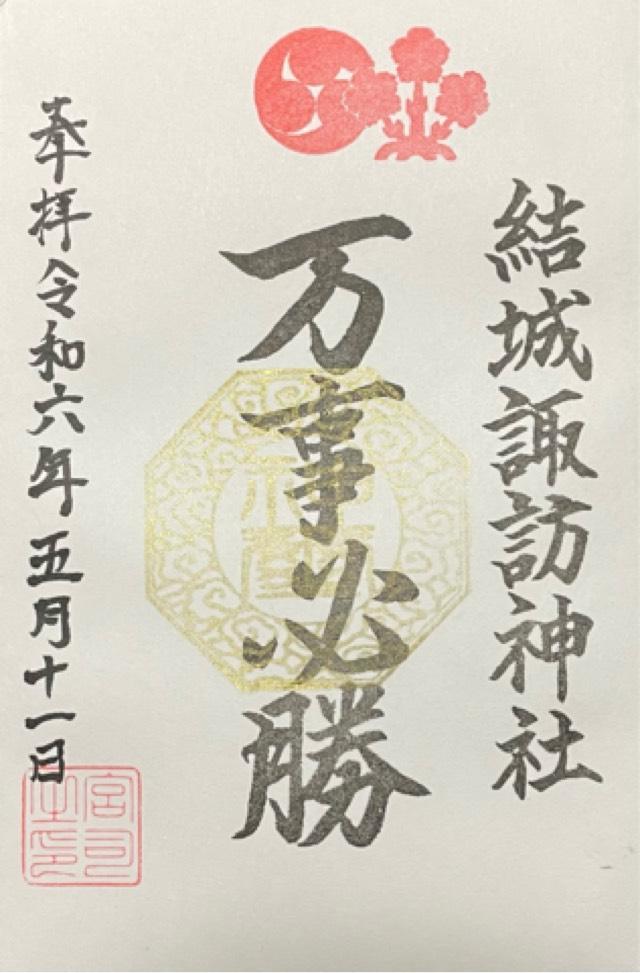 結城諏訪神社
万事必勝
奉拝令和六年五月十一日
宮司之印